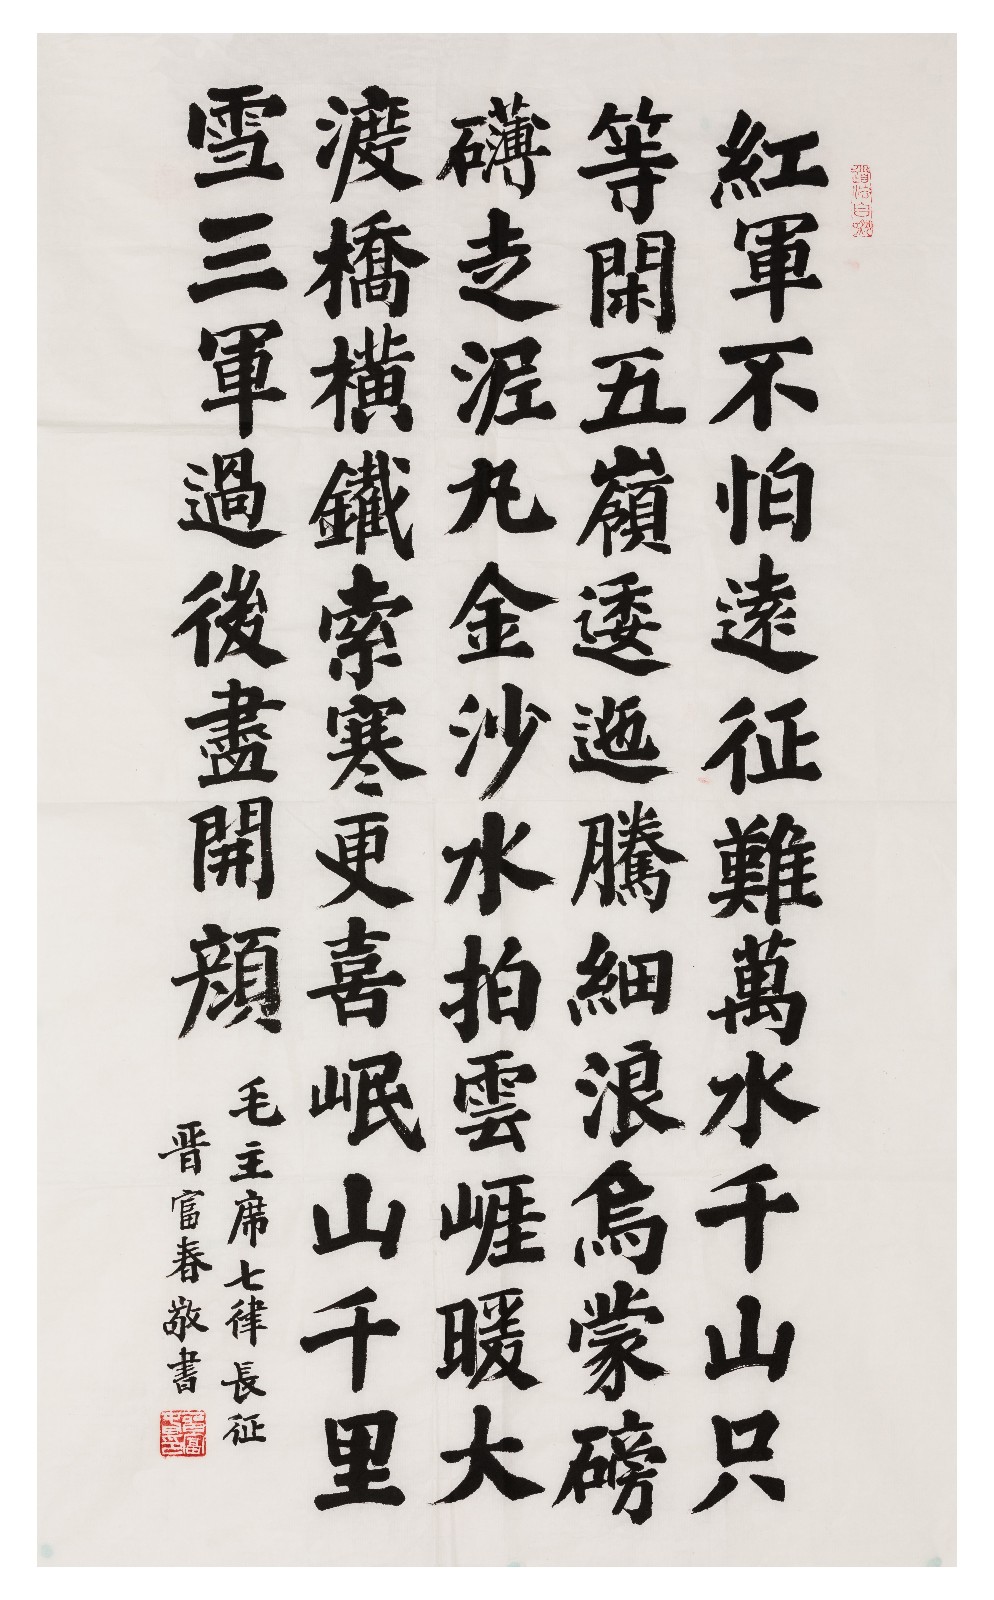 道法自然
紅軍不怕遠征難萬水千山只
等閑五嶺逶迤騰細浪烏蒙磅
礴走泥丸金沙水拍雲崕暖大
渡橋橫鐵索寒更喜岷山千里
雪三軍過後盡開顏
毛主席七律長征
晋富春敬書